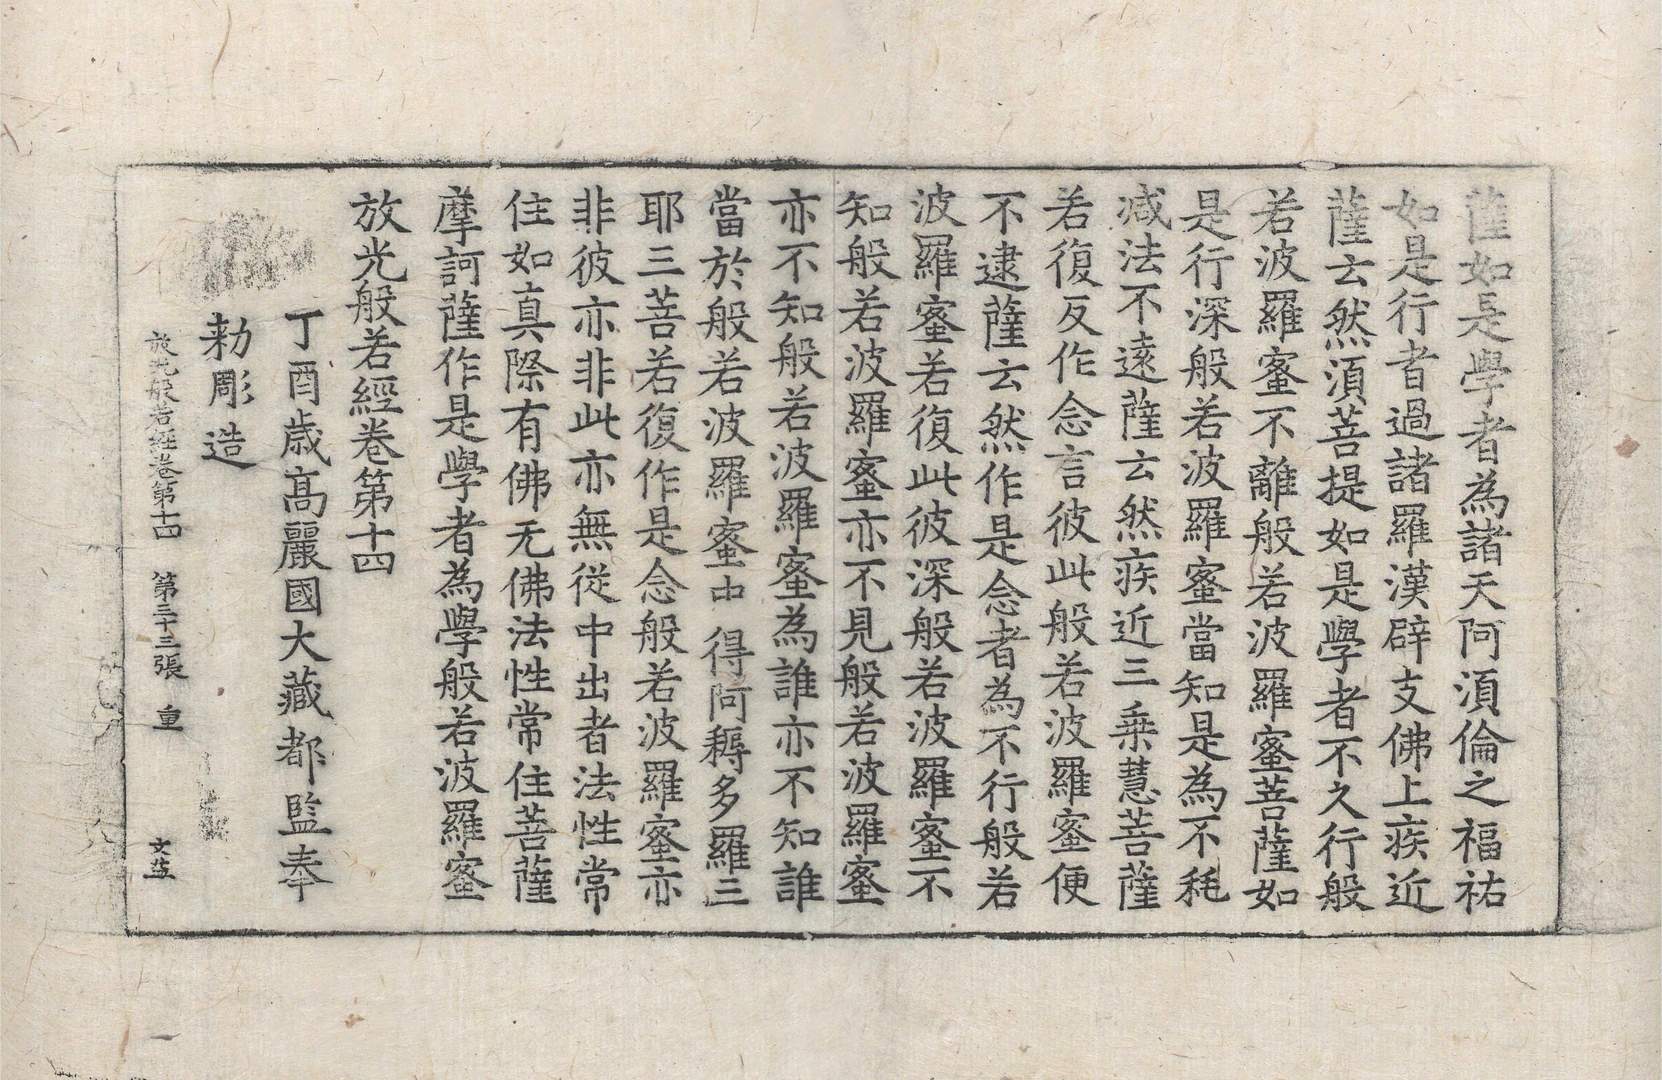 薩如是學者為諸天阿須倫之福祐
如是行者過諸羅漢辟支佛上疾近
薩云然須菩提如是學者不久行般
若波羅蜜不離般若波羅蜜菩薩如
是行深般若波羅蜜當知是為不耗
減法不遠薩云然疾近三乘慧菩薩
若復反作念言彼此般若波羅蜜便
不逮薩云然作是念者為不行般若
波羅蜜若復此彼深般若波羅蜜不
知般若波羅蜜亦不見般若波羅蜜
亦不知般若波羅蜜為誰亦不知誰
當於般若波羅蜜中得阿耨多羅三
耶三菩若復作是念般若波羅蜜亦
非彼亦非此亦無從中出者法性常
住如真際有佛无佛法性常住菩薩
摩訶薩作是學者為學般若波羅蜜
放光般若經卷第十四
丁酉歲高麗國大藏都監奉
勅彫造
放光般若經卷第十四 第三十三張 重